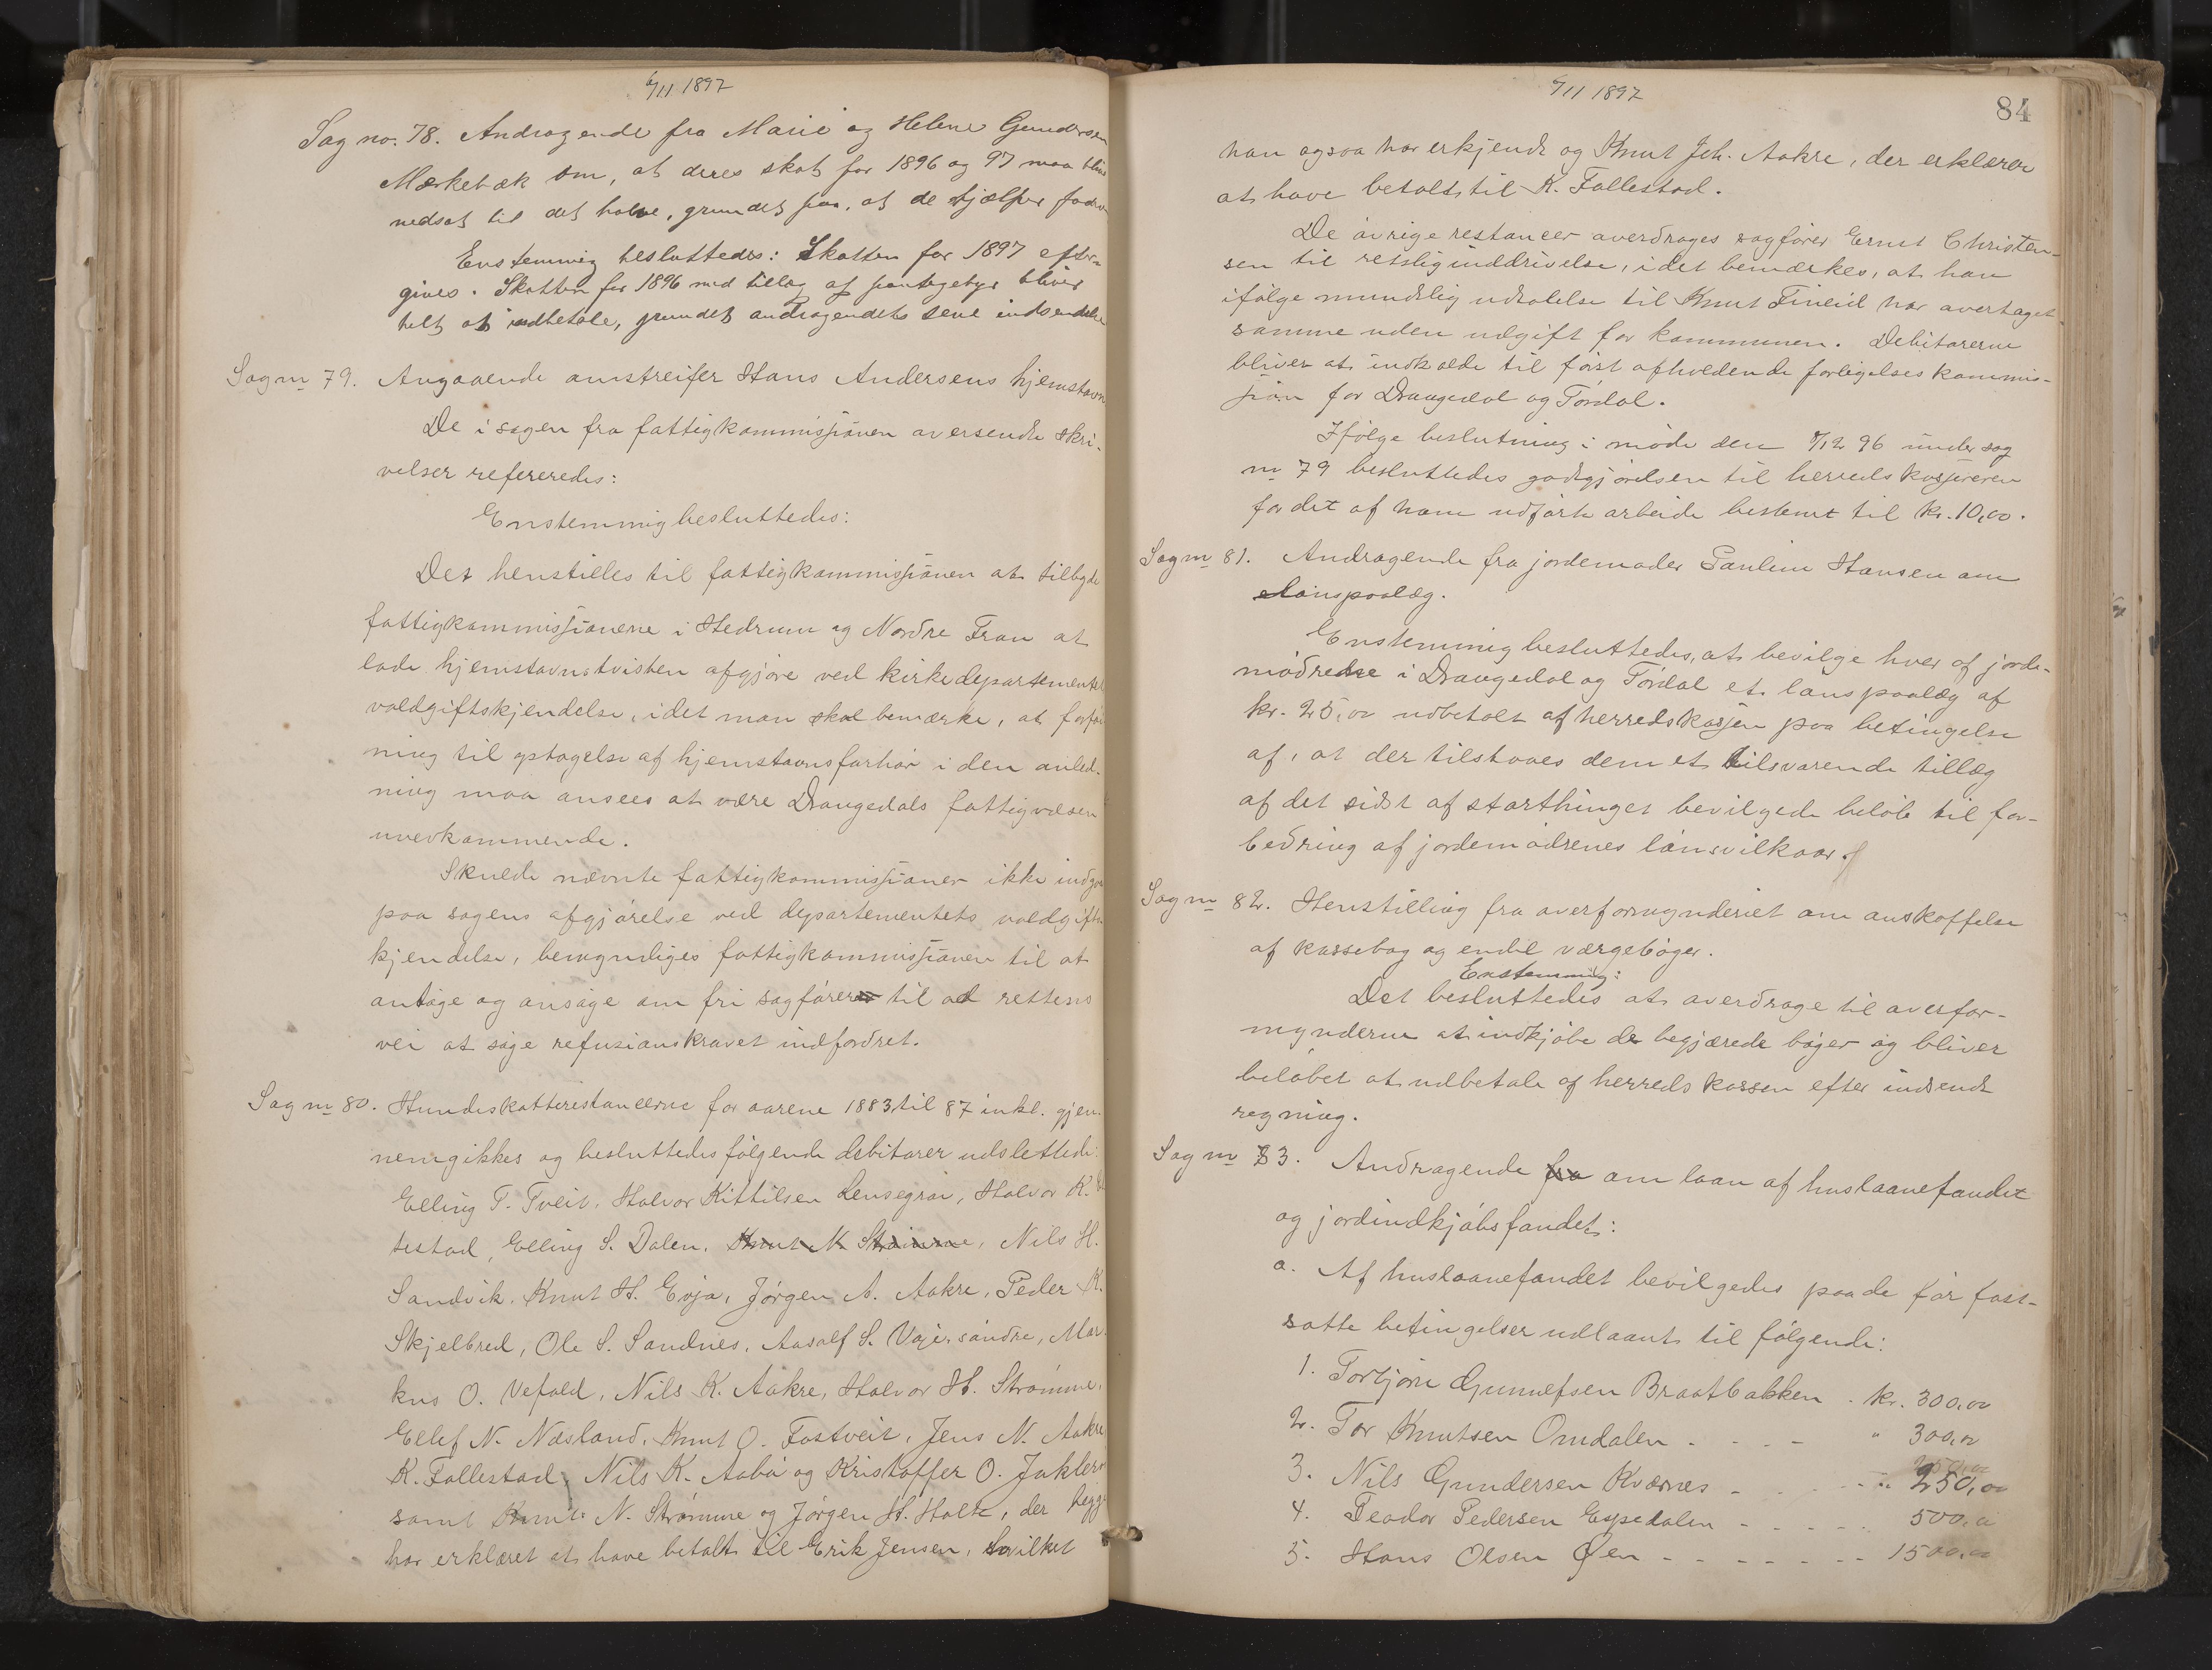 6/11 1897
Sag no. 78. Andragende fra Marie og Helene Gundersen
Mærkebæk om, at deres skat for 1896 og 97 maa blive
nedsat til det halve, grundet paa, at de hjælper
Enstemmig besluttedes: Skatten for 1897 efter-
gives. Skatten for 1896 med tillæg af pantegebyr bliver
helt at indbetale, grundet andragendets sene indsendelse
Sag nr 79. Angaaende omstreifer Hans Andersens hjemstavn
De i sagen fra fattigkommissjonen oversendte skri-
velser refereredes:
Enstemmig besluttedes:
Det henstilles til fattigkommissjonen at tilbyde
fattigkommissjonerne i Hedrum og Nordre Fron at
lade hjemstavnstvisten afgjøre ved kirkedepartementets
voldgiftskjendelse, idet man skal bemærke, at forføi
ning til optagelse af hjemstavnsforhør i den anled-
ning maa ansees at være Drangedals fattigvæsen
uvedkommende.
Skulde nævnte fattigkommissjoner ikke indgaa
paa sagens afgjørelse ved departementets voldgifts
kjendelse, bemyndiges fattigkommissjonen til at
antage og ansøge om fri sagfører til ad rettens
vei at søge refusionskravet indfordret.
Sag nr 80. Hundeskatterestancerne for aarene 1883 til 87 inkl. gjen-
nemgikkes og besluttedes følgende debitorer udslettede:
Elling T. Tveit, Halvor Kittilsen Lensegrav, Halvor K.
testad, Elling S. Dalen, Knut N. Strømme, Nils H.
Sandvik, Knut H. Evja, Jørgen A. Aakre, Peder K.
Skjelbred, Ole S. Sandnes, Aasolf S. Voje søndre, Mar-
kus O. Vefald, Nils K. Aakre, Halvor H. Strømme,
Ellef N. Næsland, Knut O. Tostveit, Jens N. Aakre
K. Follestad, Nils K. Aabø og Kristoffer O. Jukler
samt Knut N. Strømme og Jørgen H. Holte, der begge
har erklæret at have betalt til Erik Jensen, hvilket
6/11 1897
84
han ogsaa har erkjendt og Knut Joh. Aakre, der erklærer
at have betalt til K. Follestad.
De øvrige restancer overdrages sagfører Ernst Christen-
sen til retslig inddrivelse, idet bemærkes, at han
ifølge mundtlig udtalelse til Knut Fineid har overtaget
samme uden udgift for kommunen. Debitorerne
bliver at indkalde til først afholdende forligelseskommis-
sjon for Drangedal og Tørdal.
Ifølge beslutning i møde den 8/12 96 under sag
nr 79 besluttedes godtgjørelsen til herredskassjereren
for det af ham udførte arbeide bestemt til kr. 10,00.
Sag nr 81. Andragende fra jordemoder Pauline Hansen om
lønspaalæg.
Enstemmig besluttedes, at bevilge hver af jorde-
mødrene i Drangedal og Tørdal et lønspaalæg af
kr. 25,00 udbetalt af herredskassen paa betingelse
af, at der tilstaaes dem et tilsvarende tillæg
af det sidst af storthinget bevilgede beløb til for-
bedring af jordemødrenes lønsvilkaar.
Sag nr 82. Henstilling fra overformynderiet om anskaffelse
af kassebog og endel værgebøger.
Enstemmig:
Det besluttedes at overdrage til overfor-
mynderne at indkjøbe de begjærede bøger og bliver
beløbet at udbetale af herredskassen efter indsendt
regning.
Sag nr 83. Andragende fra om laan af huslaanefondet
og jordindkjøbsfondet:
a. Af huslaanefondet bevilgedes paa de før fast-
satte betingelser udlaant til følgende:
1. Torbjørn Gunnufsen Braatbakken . kr. 300,00
2. Tor Knutsen Omdalen - - - - " 300,00
3. Nils Gundersen Kværnes - - - - " 250,00
4. Teodor Pedersen Espedalen - - - - - 500,00
5. Hans Olsen Øen - - - - - - - 1500,00